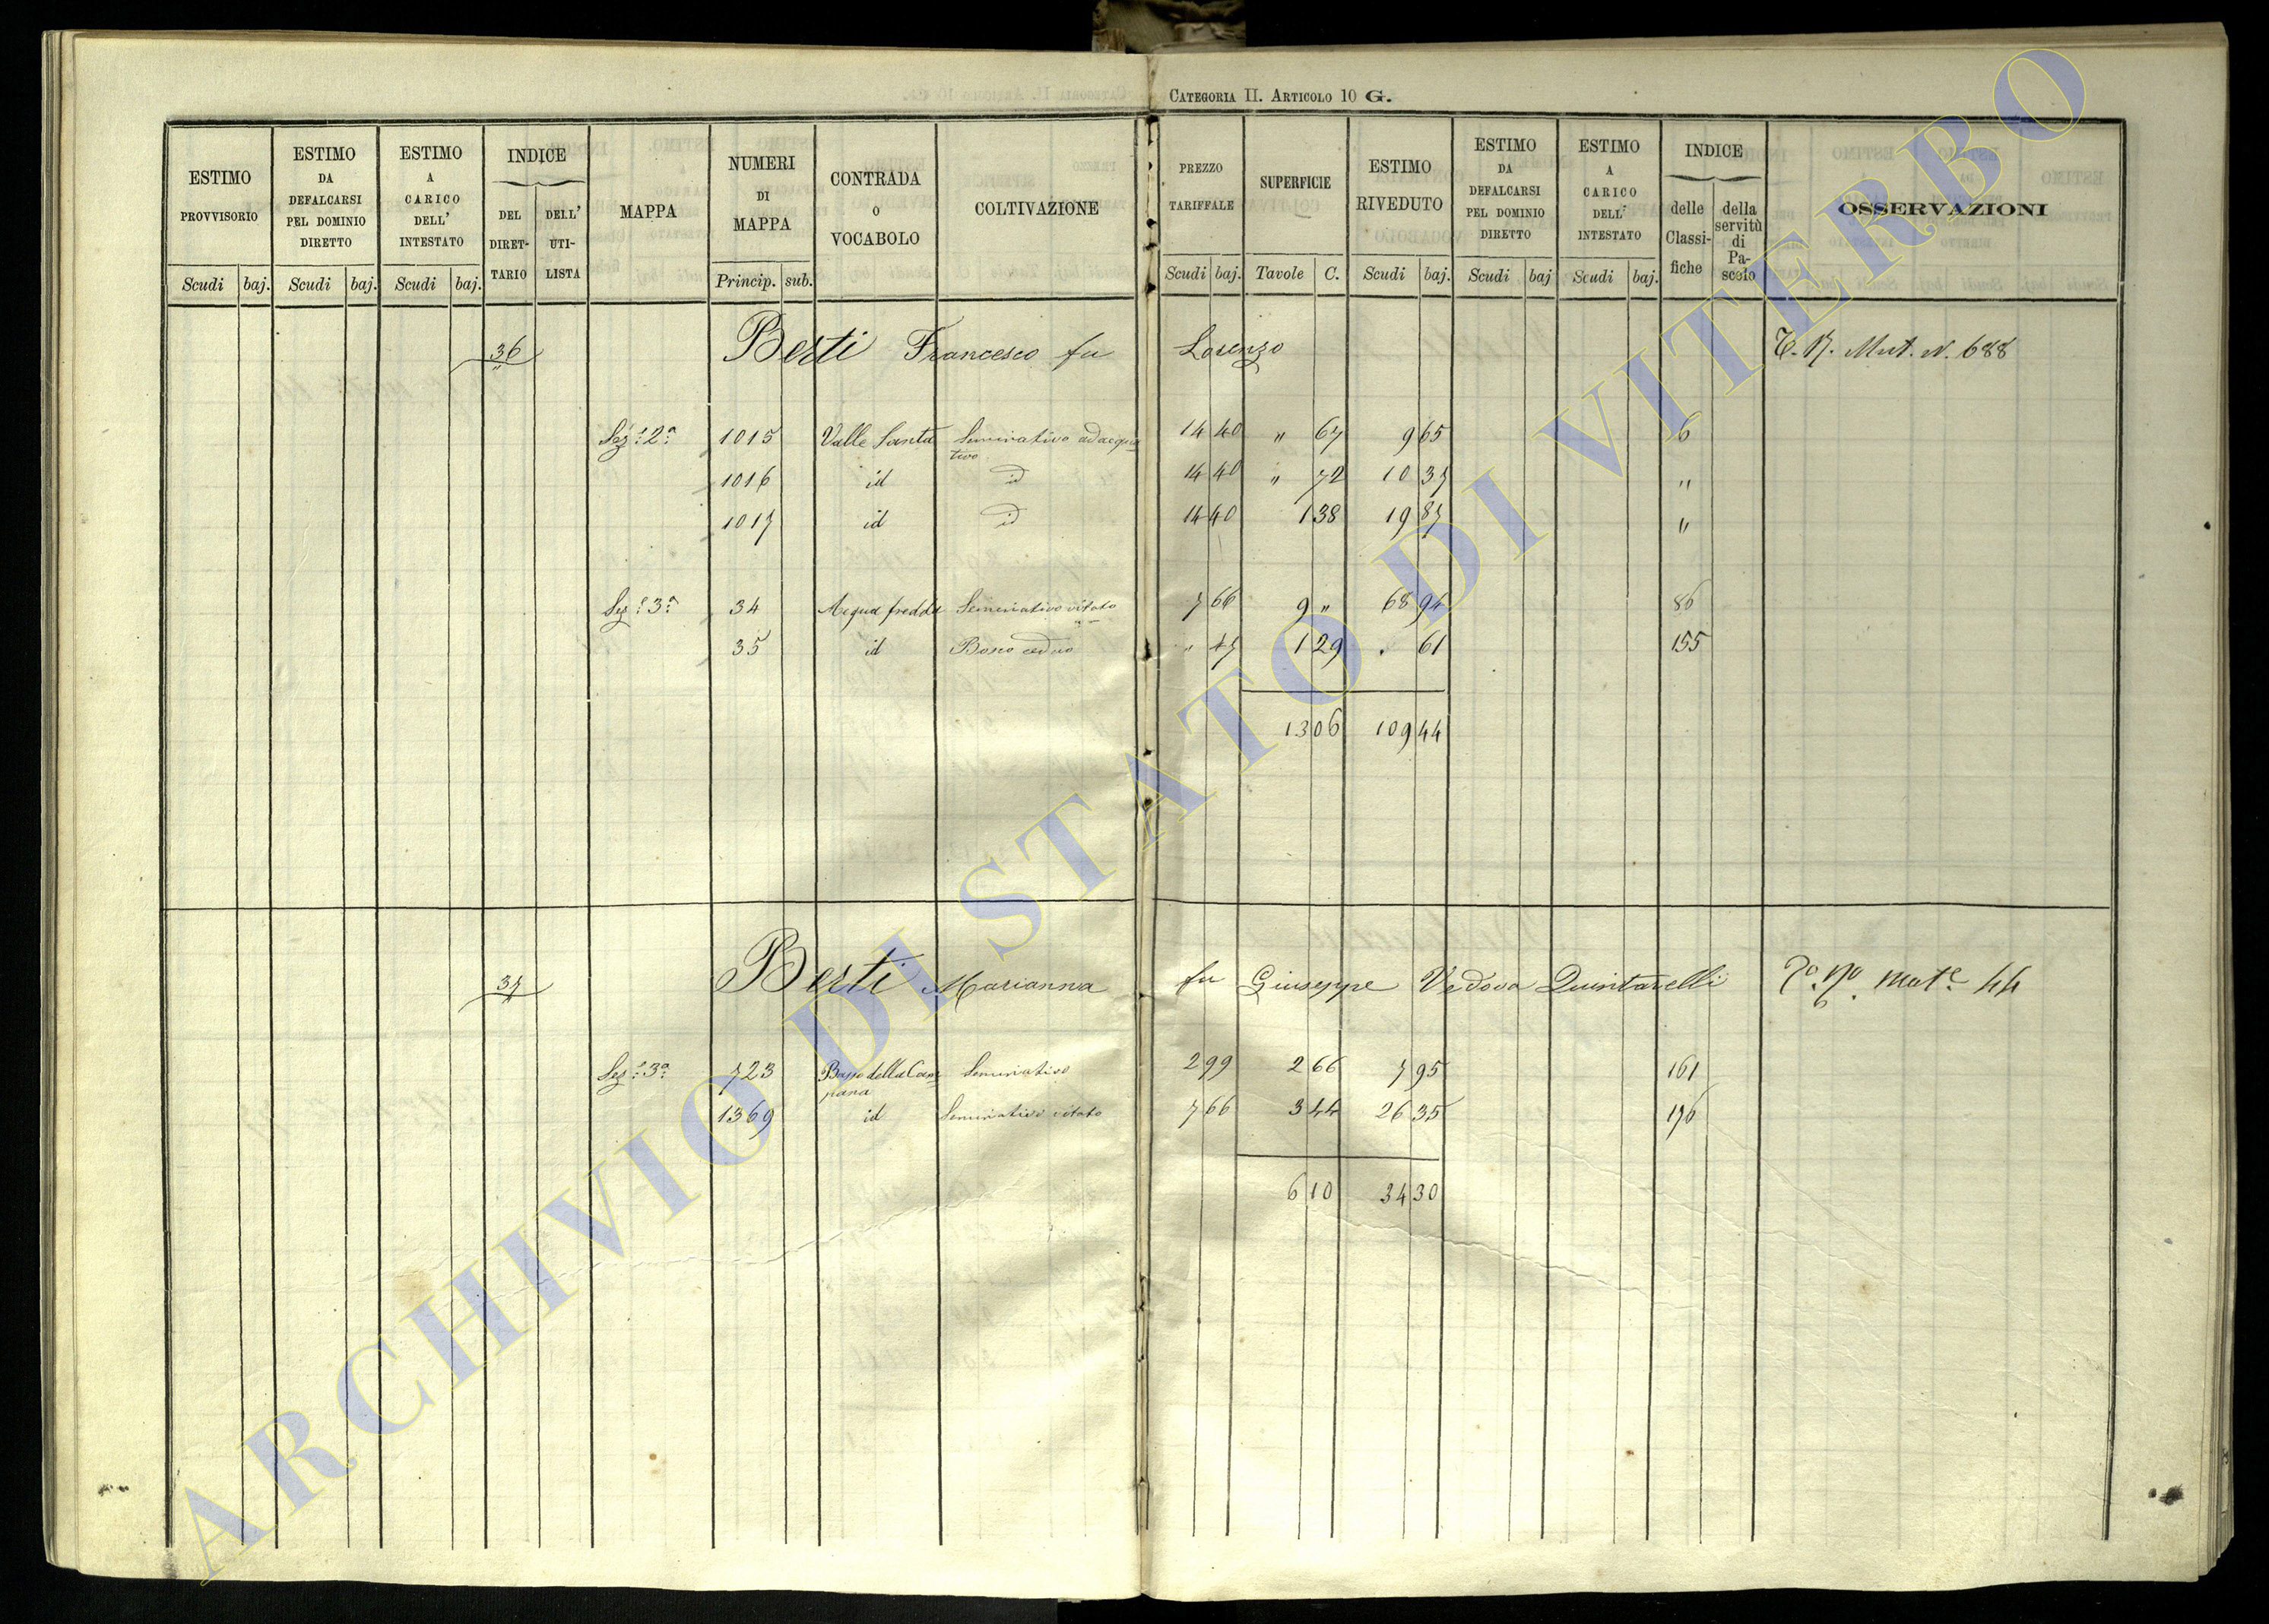 CATEGORIA II. ARTICOLO 10 G.
ESTIMO PROVVISORIO Scudi baj.
ESTIMO DA DEFALCARSI PEL DOMINIO DIRETTO Scudi baj.
ESTIMO A CARICO DELL' INTESTATO Scudi baj.
INDICE DEL DIRETTARIO DELL' UTILISTA
MAPPA
NUMERI DI MAPPA Princip. sub.
CONTRADA O VOCABOLO
COLTIVAZIONE
PREZZO TARIFFALE Scudi baj.
SUPERFICIE Tavole C.
ESTIMO RIVEDUTO Scudi baj.
ESTIMO DA DEFALCARSI PEL DOMINIO DIRETTO Scudi baj
ESTIMO A CARICO DELL' INTESTATO Scudi baj.
INDICE delle Classifiche della servitù di Pascolo
OSSERVAZIONI
36 Berti Francesco fu Lorenzo Mut. N. 688
Sez: 2ª 1015 Valle Santa Seminativo adacquativo 14 40 " 67 9 65 6
1016 id id 14 40 " 72 10 37 "
1017 id id 14 40 1 38 19 87 "
Sez: 3ª 34 Acqua fredda Seminativo vitato 7 66 9 " 68 94 86
35 id Bosco ceduo " 47 1 29 . 61 155
13 06 109 44
37 Berti Marianna fu Giuseppe Vedova Quintarelli 44
Sez: 3ª 723 Basso della Campana Seminativo 2 99 2 66 7 95 161
1369 id Seminativo vitato 7 66 3 44 26 35 176
6 10 34 30
ARCHIVIO DI STATO DI VITERBO